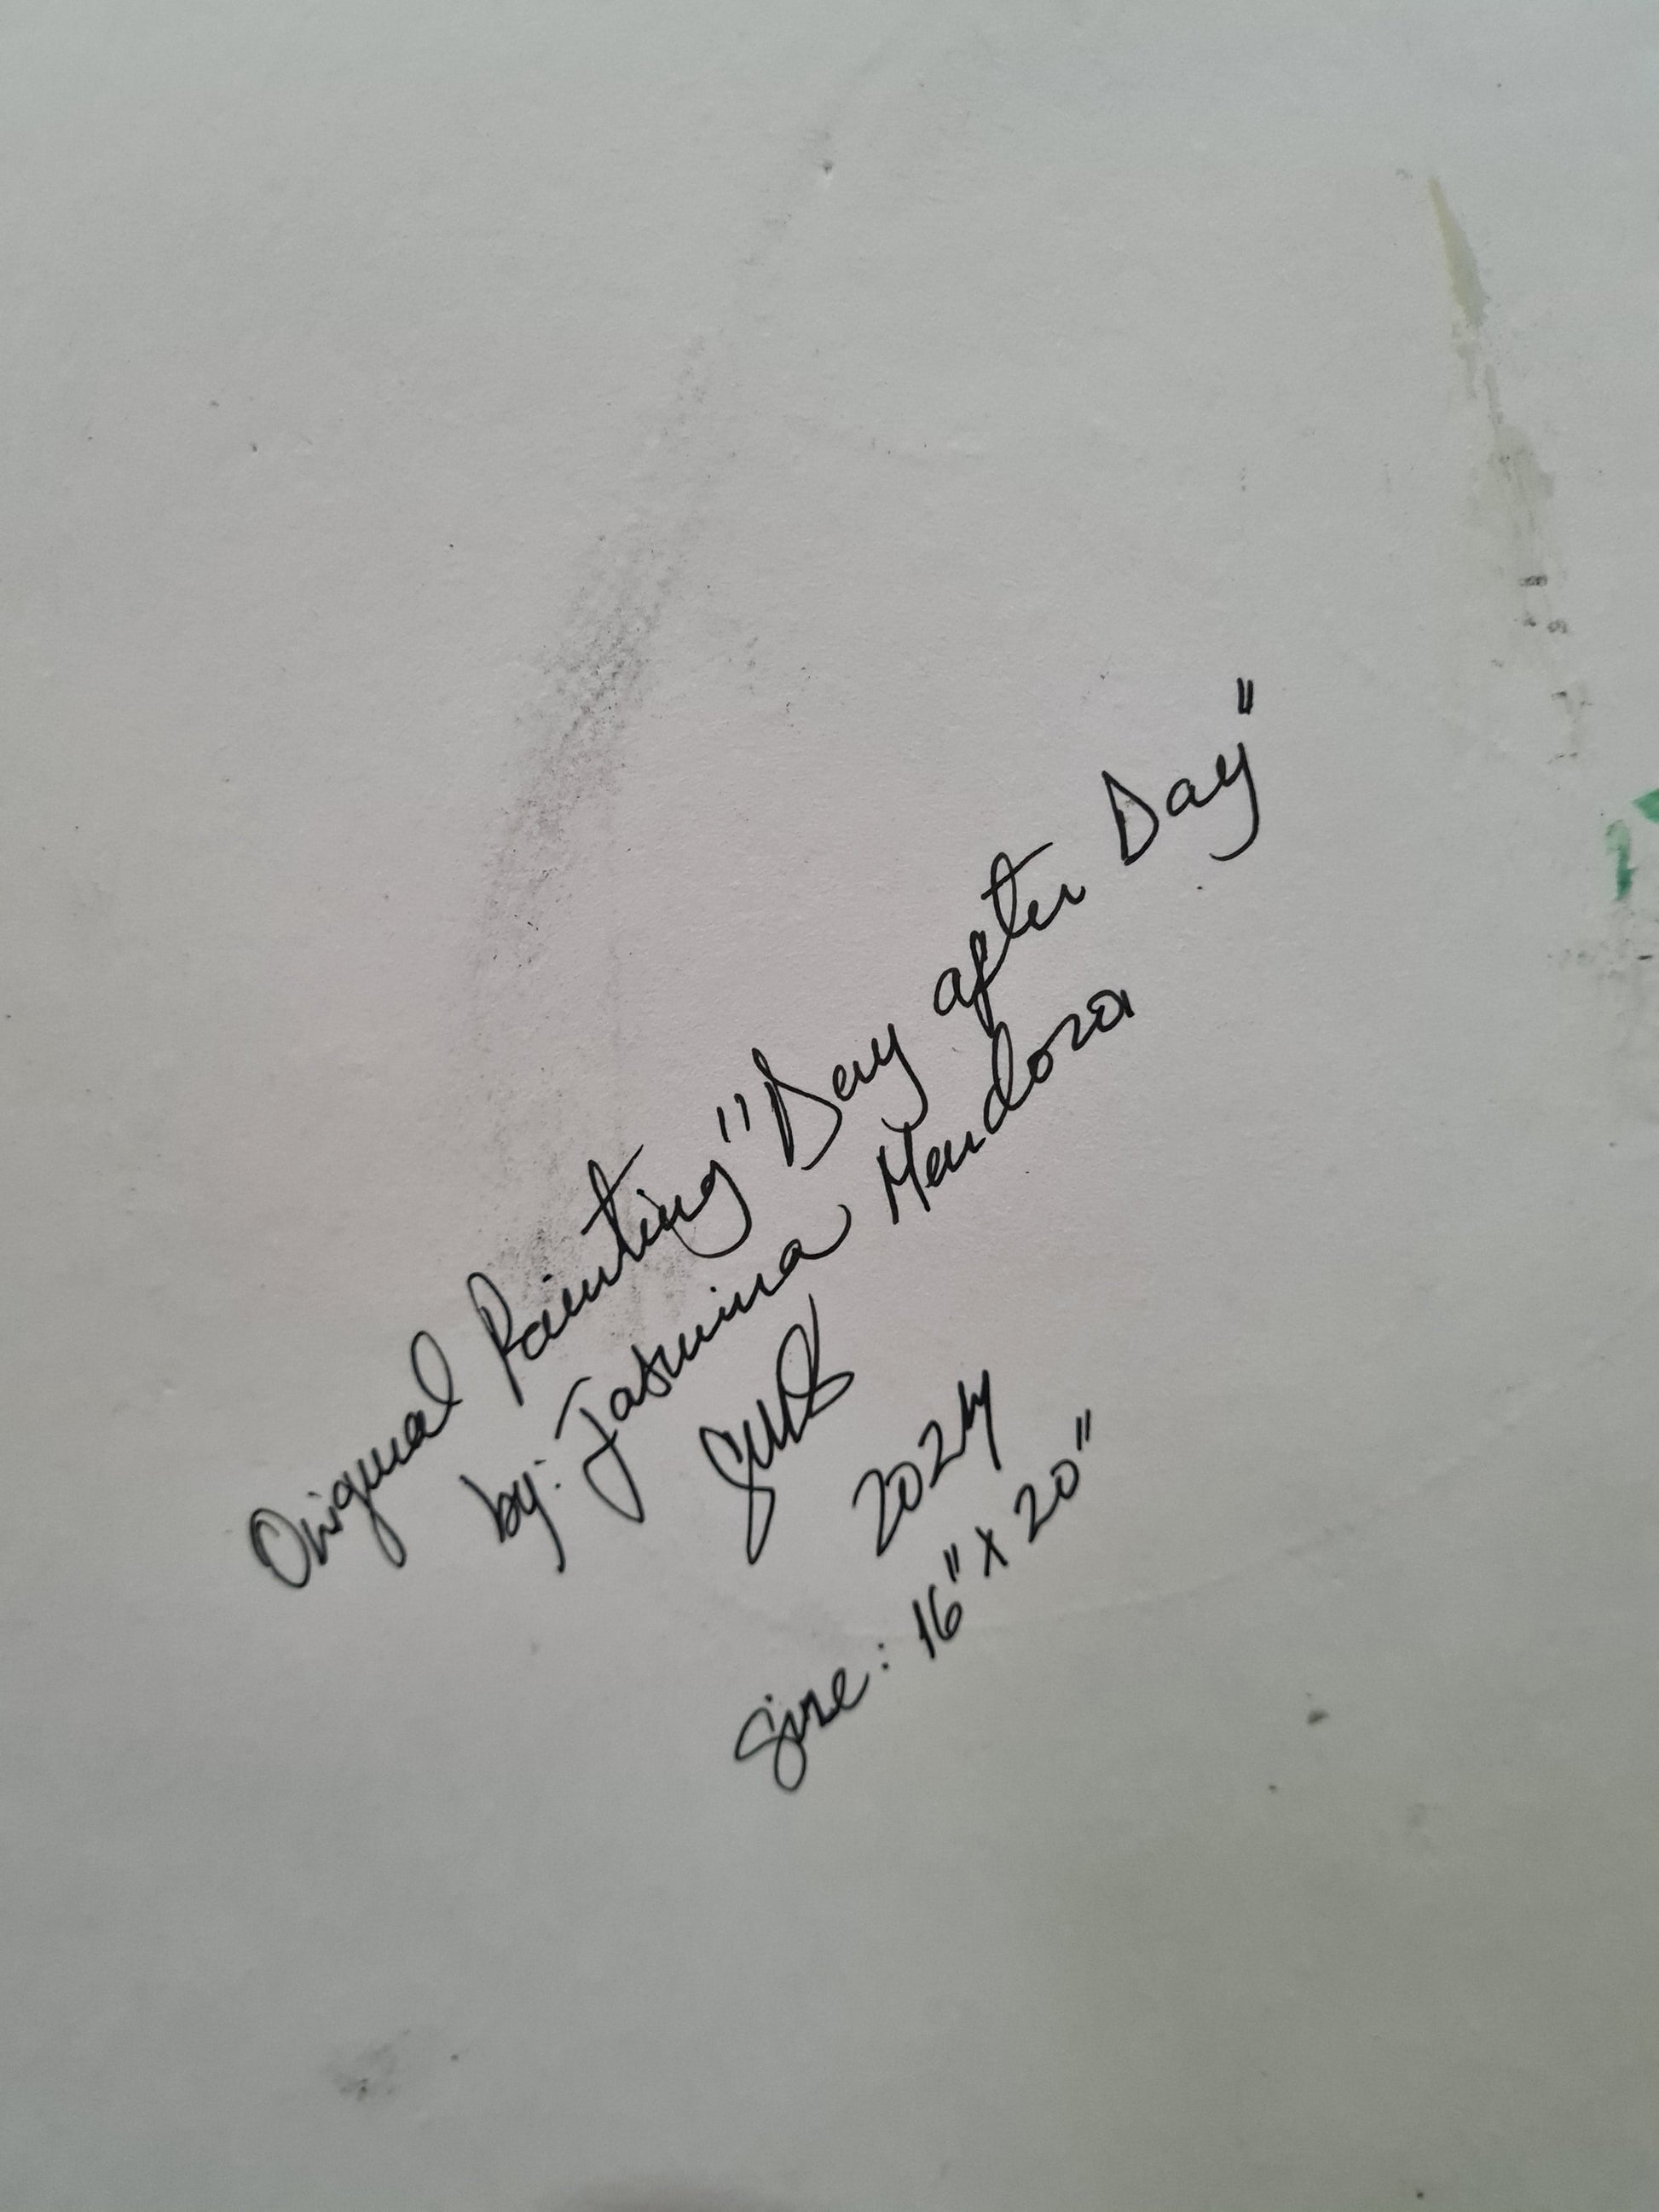 Original Painting "Day after Day"
by: Jasmina Mendoza
2024
Size: 16" x 20"